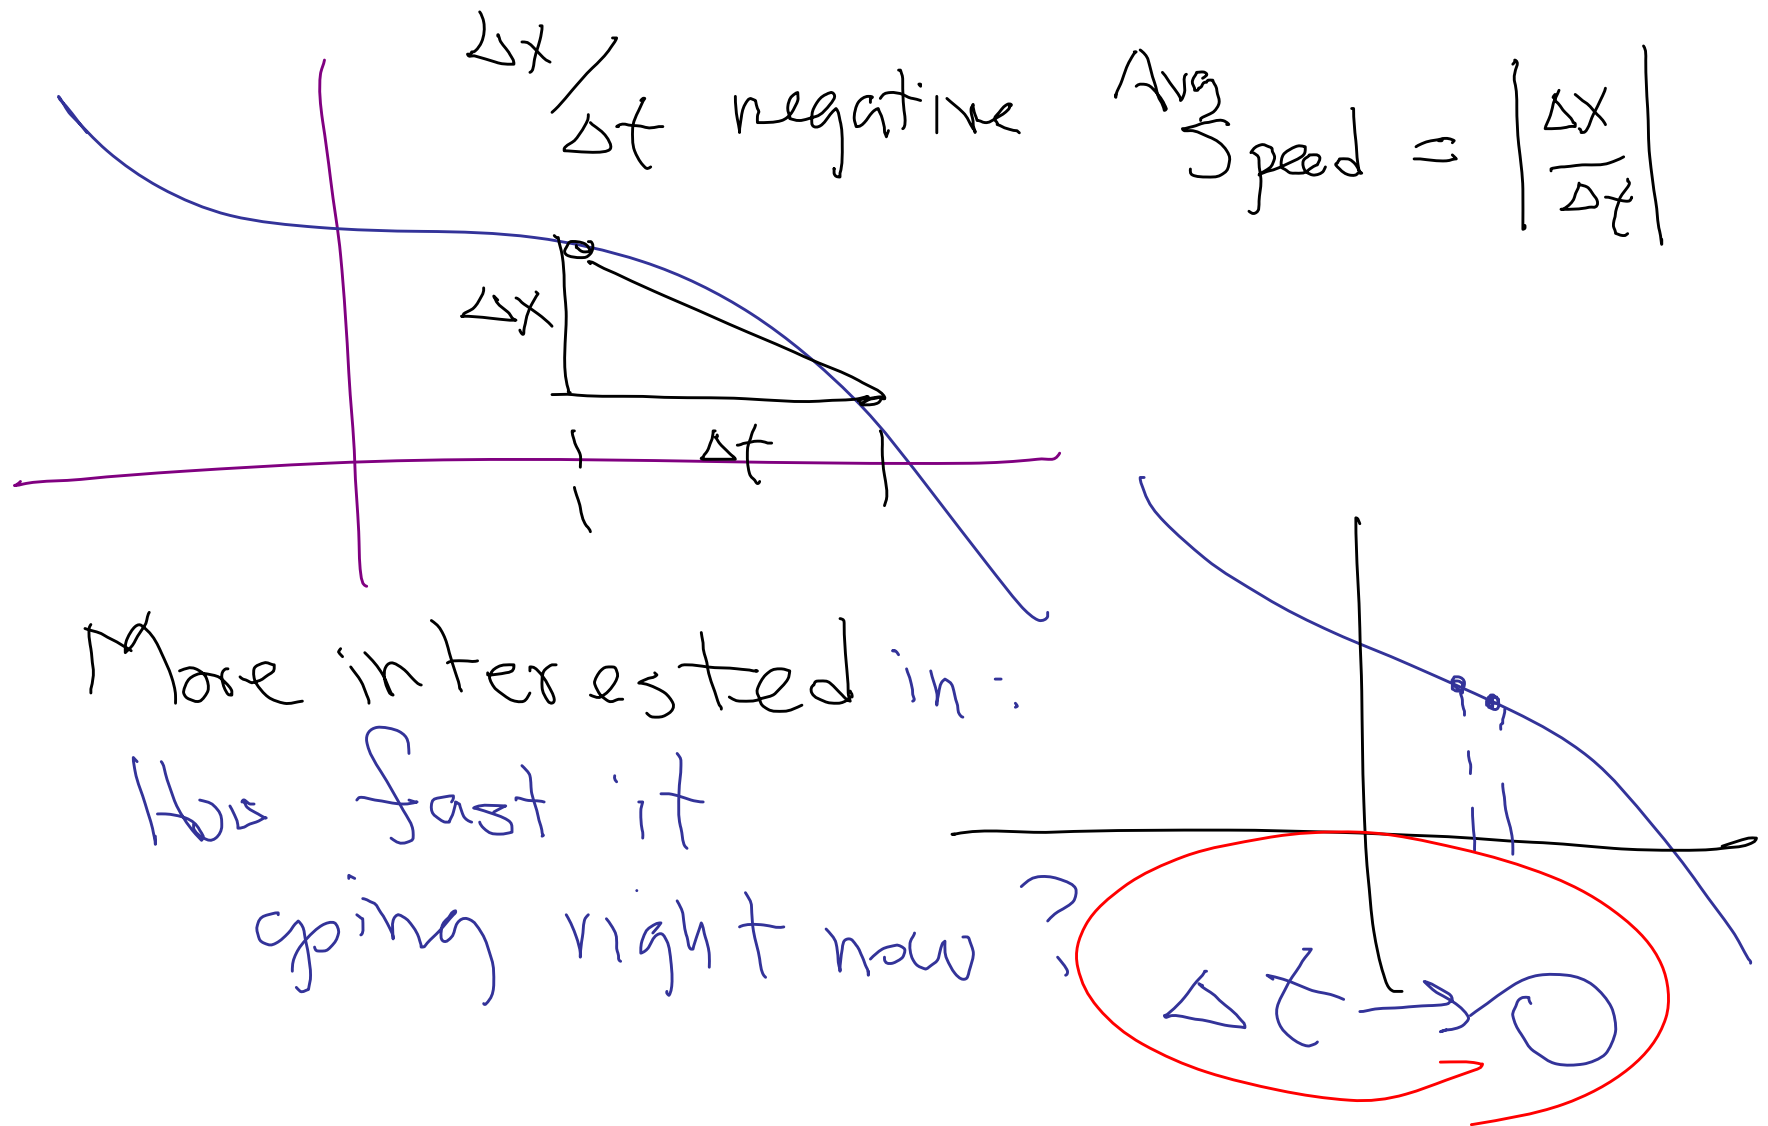 Δx/Δt negative
Avg Speed = |Δx/Δt|
Δx
Δt
More interested in:
How fast it
going right now?
Δt → 0